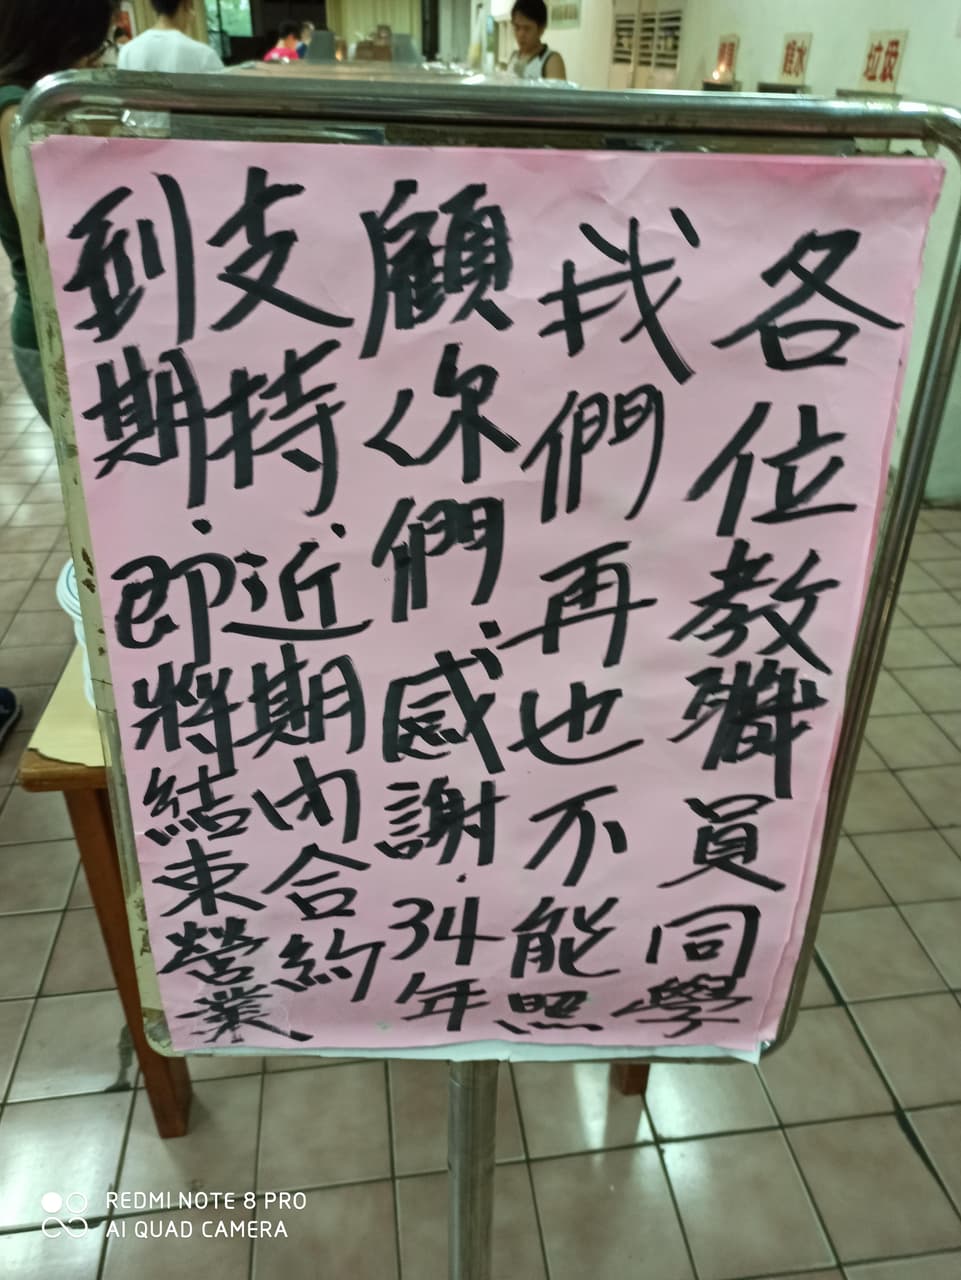 各位教職員同學
我們再也不能照
顧你們感謝.34年
支持.近期內合約
到期.即將結束營業
餿水
垃圾
REDMI NOTE 8 PRO
AI QUAD CAMERA